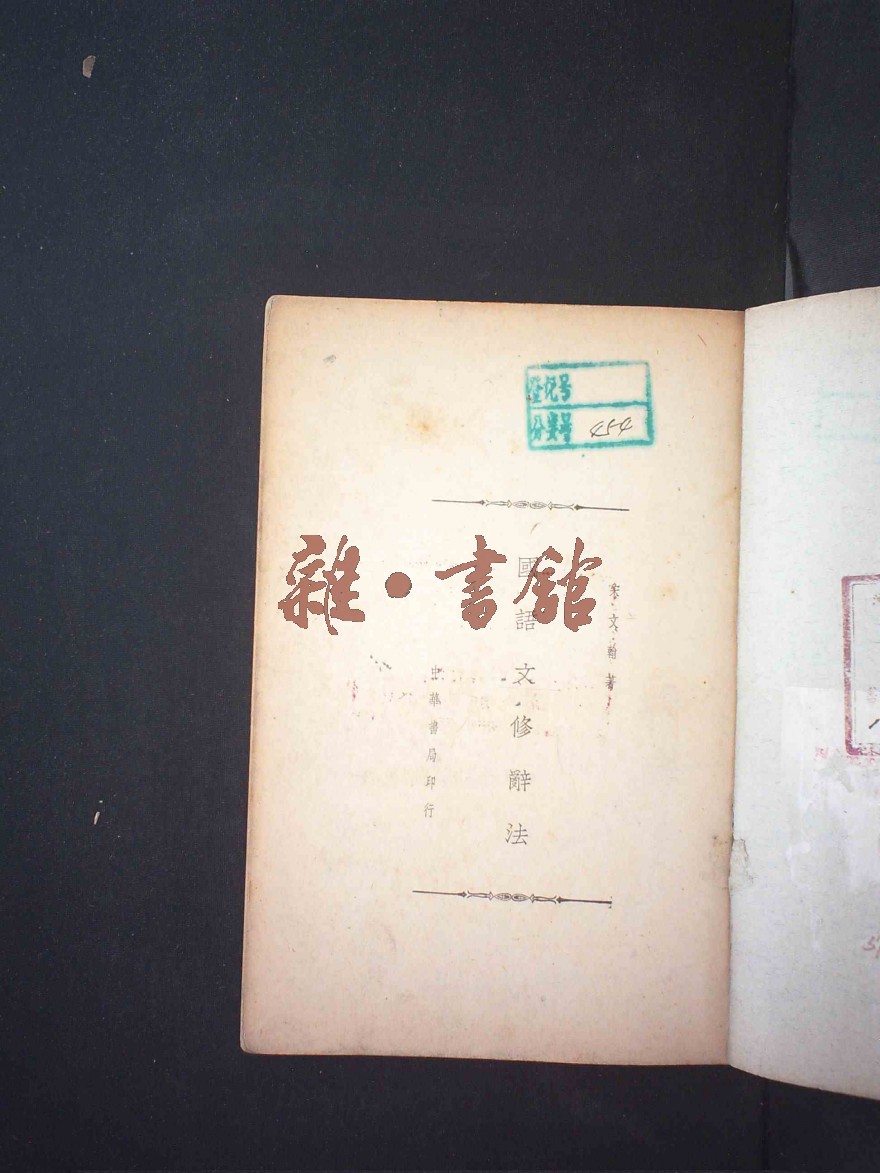 登记号
分类号 454
宋文翰著
國語文修辭法
中華書局印行
雜·書館